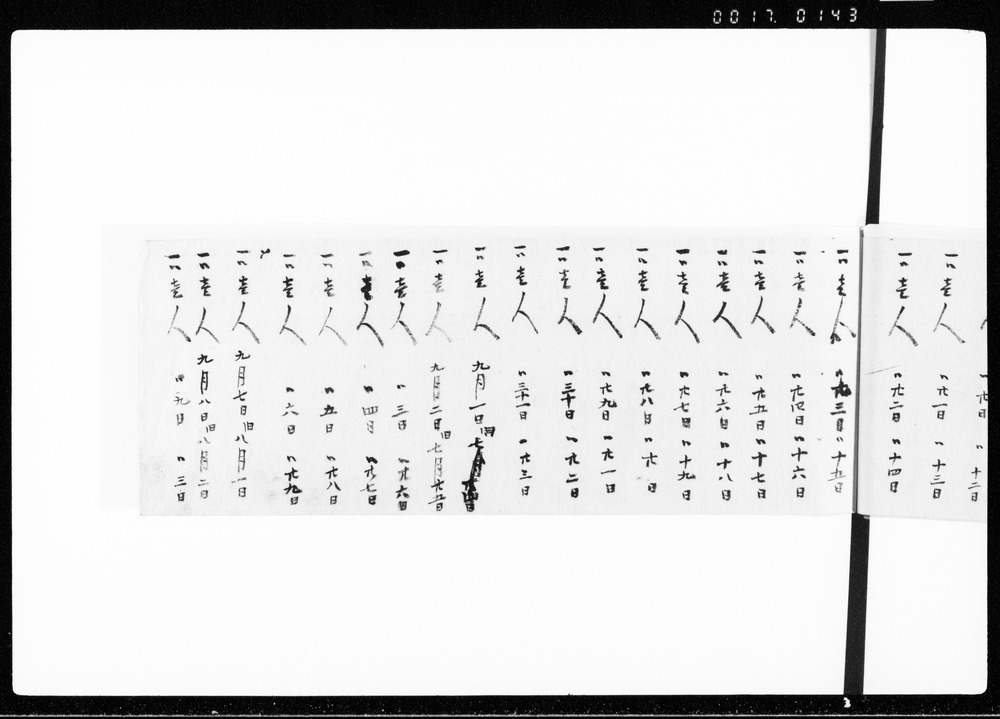 0017. 0143
廿日 〃十二日
一〃壱人 〃廿一日 〃十三日
一〃壱人 〃廿二日 〃十四日
一〃壱人 〃廿三日 〃十五日
一〃壱人 〃廿四日 〃十六日
一〃壱人 〃廿五日 〃十七日
一〃壱人 〃廿六日 〃十八日
一〃壱人 〃廿七日 〃十九日
一〃壱人 〃廿八日 〃廿日
一〃壱人 〃廿九日 〃廿一日
一〃壱人 〃三十日 〃廿二日
一〃壱人 〃三十一日 〃廿三日
一〃壱人 九月一日旧七月廿四日
一〃壱人 九月二日旧七月廿五日
一〃壱人 〃三日 〃廿六日
一〃壱人 〃四日 〃廿七日
一〃壱人 〃五日 〃廿八日
一〃壱人 〃六日 〃廿九日
一〃壱人 九月七日旧八月一日
一〃壱人 九月八日旧八月二日
一〃壱人 〃九日 〃三日